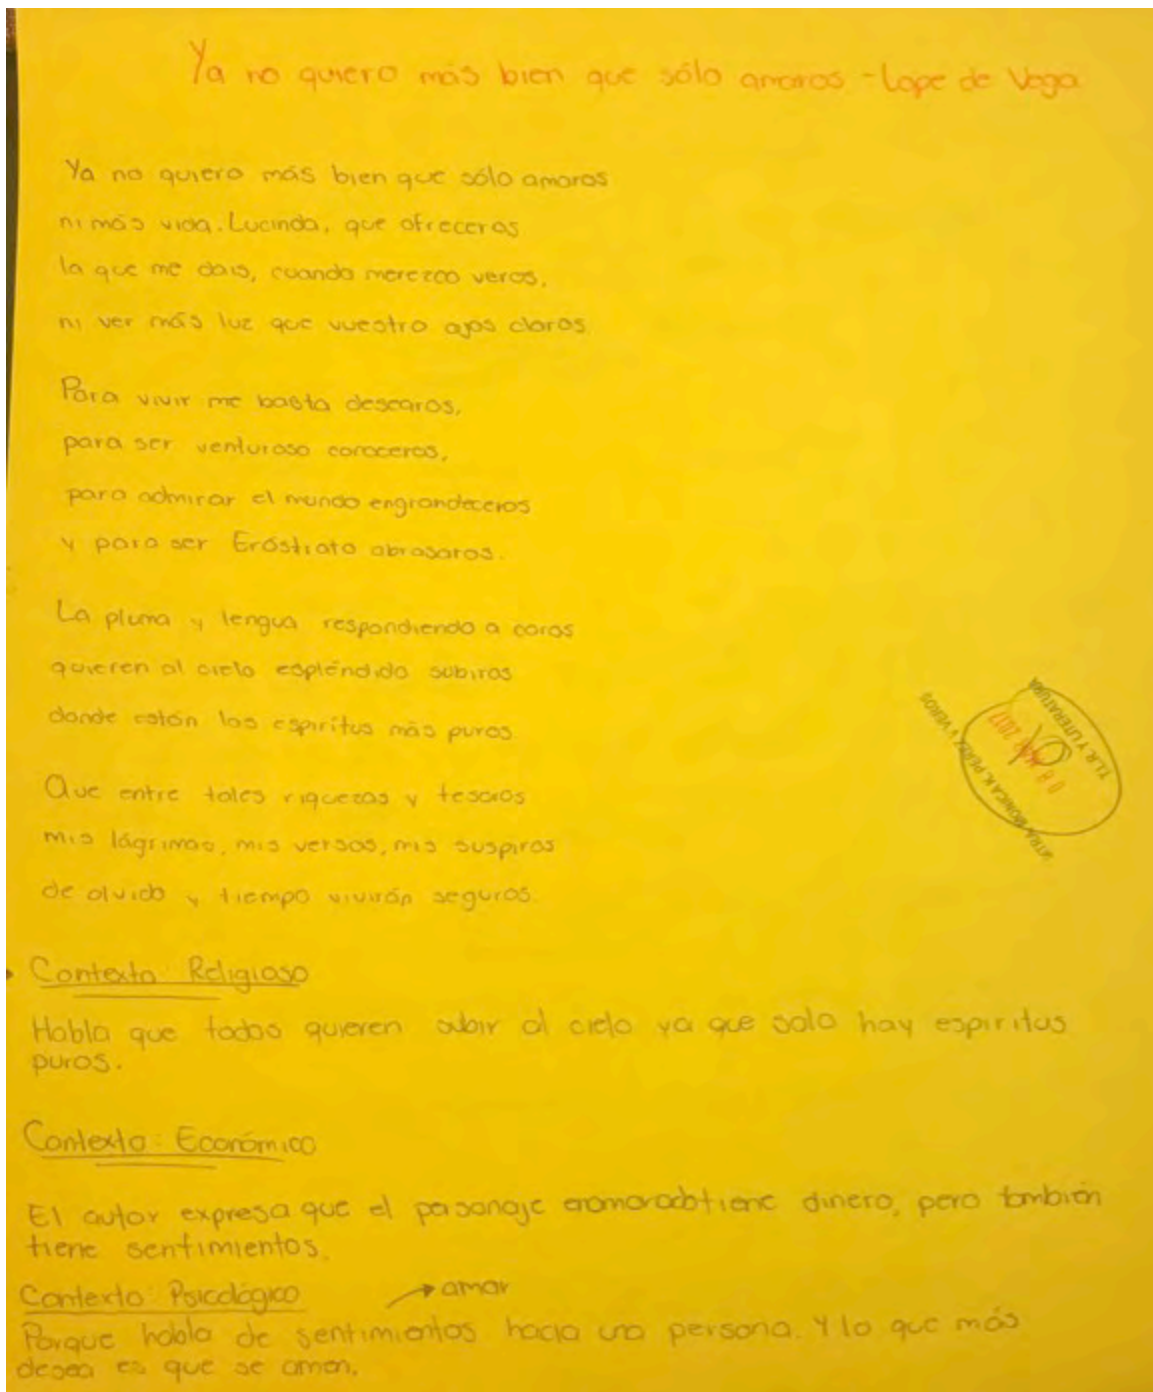 Ya no quiero más bien que sólo amaros - Lope de Vega
Ya no quiero más bien que sólo amaros
ni más vida. Lucinda, que ofreceros
la que me dais, cuando merezco veros,
ni ver más luz que vuestro ojos claros.
Para vivir me basta desearos,
para ser venturoso conoceros,
para admirar el mundo engrandeceros
y para ser Eróstrato abrasaros.
La pluma y lengua respondiendo a coros
quieren al cielo espléndido subiros
donde están los espíritus más puros.
Que entre tales riquezas y tesoros
mis lágrimas, mis versos, mis suspiros
de olvido y tiempo vivirán seguros.
T.L.R. Y LITERATURA
08 2017
MTRA. MÓNICA K. PÉREZ Y VEROS
Contexto: Religioso
Habla que todos quieren subir al cielo ya que solo hay espiritus
puros.
Contexto: Económico
El autor expresa que el personaje enamorado tiene dinero, pero también
tiene sentimientos.
Contexto: Psicológico → amor
Porque habla de sentimientos hacia una persona. Y lo que más
desea es que se amen.